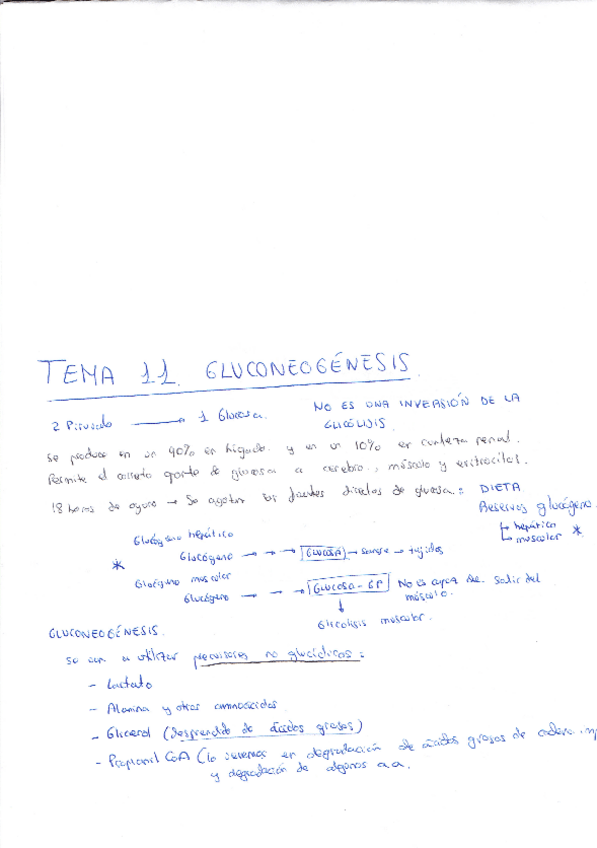 TEMA 11. GLUCONEOGÉNESIS.
2 Piruvato → 1 Glucosa. NO ES UNA INVERSIÓN DE LA GLICÓLISIS.
Se produce en un 90% en hígado y en un 10% en corteza renal.
Permite el correcto aporte de glucosa a cerebro, músculo y eritrocitos.
18 horas de ayuno → Se agotan las fuentes directas de glucosa: DIETA
Reservas glucógeno.
hepático
muscular *
Glucógeno hepático
* Glucógeno → → → GLUCOSA → sangre → tejidos
Glucógeno muscular
Glucógeno → → → GLUCOSA-6P No es capaz de salir del músculo.
↓
Glicolisis muscular.
GLUCONEOGÉNESIS.
Se van a utilizar precursores no glucídicos:
- Lactato
- Alanina y otros aminoácidos
- Glicerol (desprendido de ácidos grasos)
- Propionil CoA (lo veremos en degradación de ácidos grasos de cadena
y degradación de algunos aa.